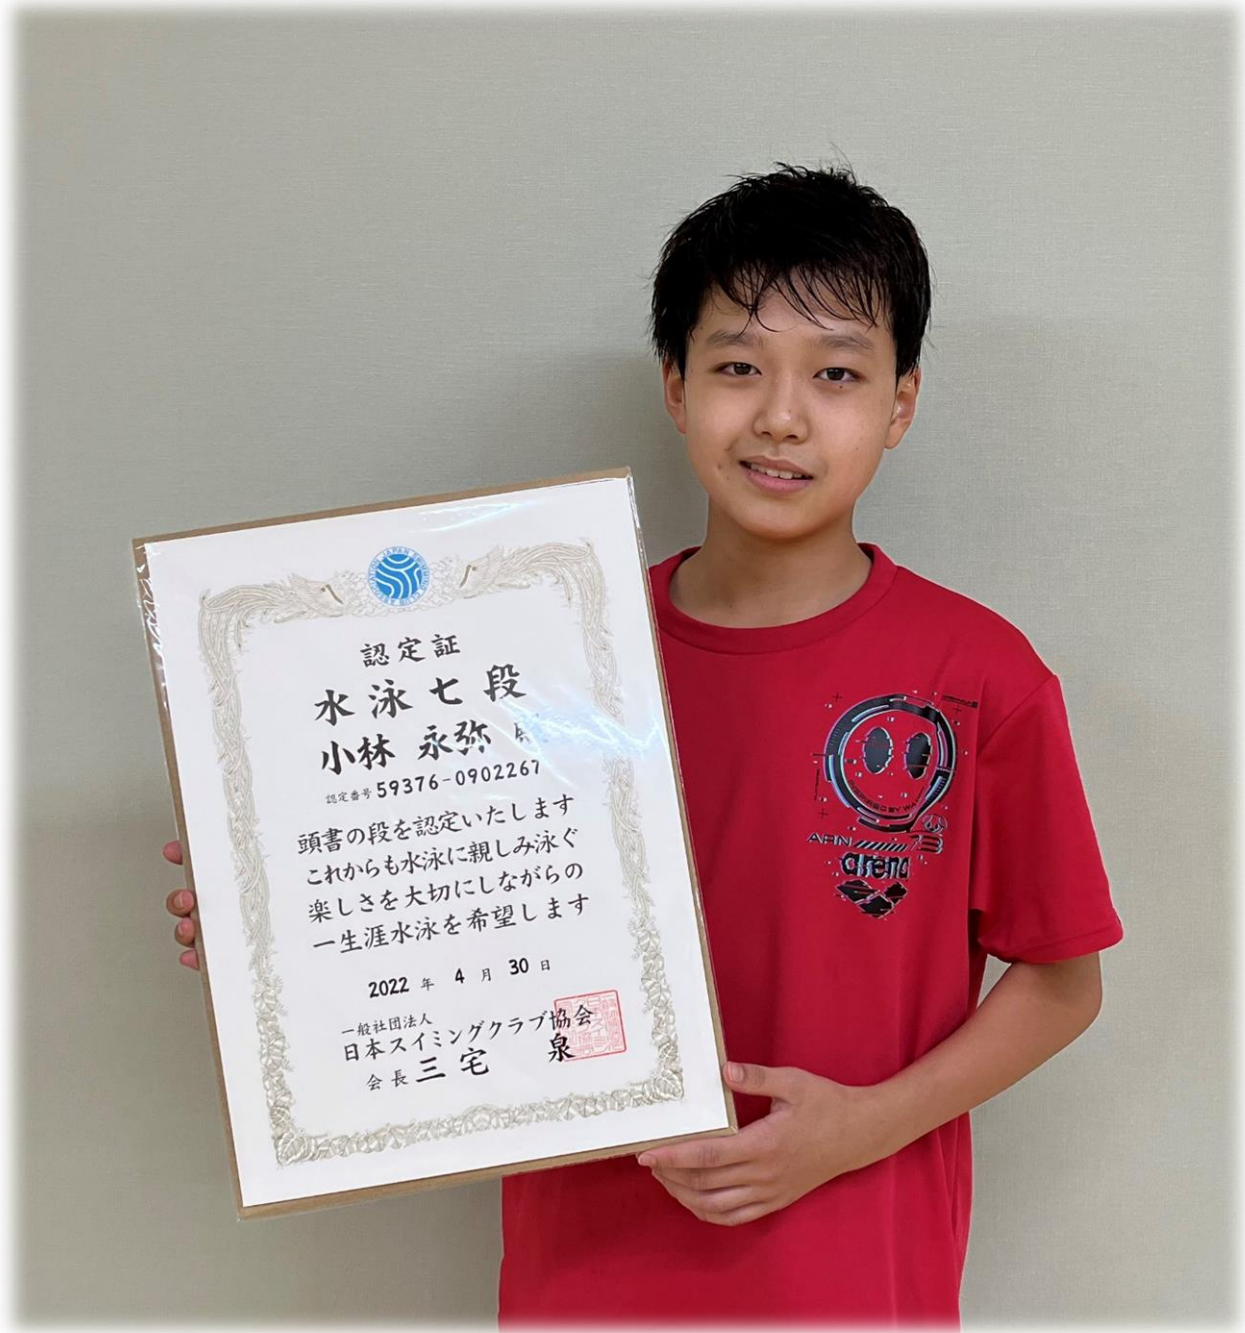 認定証
水泳七段
小林 永弥
認定番号 59376-0902267
頭書の段を認定いたします
これからも水泳に親しみ泳ぐ
楽しさを大切にしながらの
一生涯水泳を希望します
2022 年 4 月 30 日
一般社団法人
日本スイミングクラブ協会
会長 三宅 泉
arena